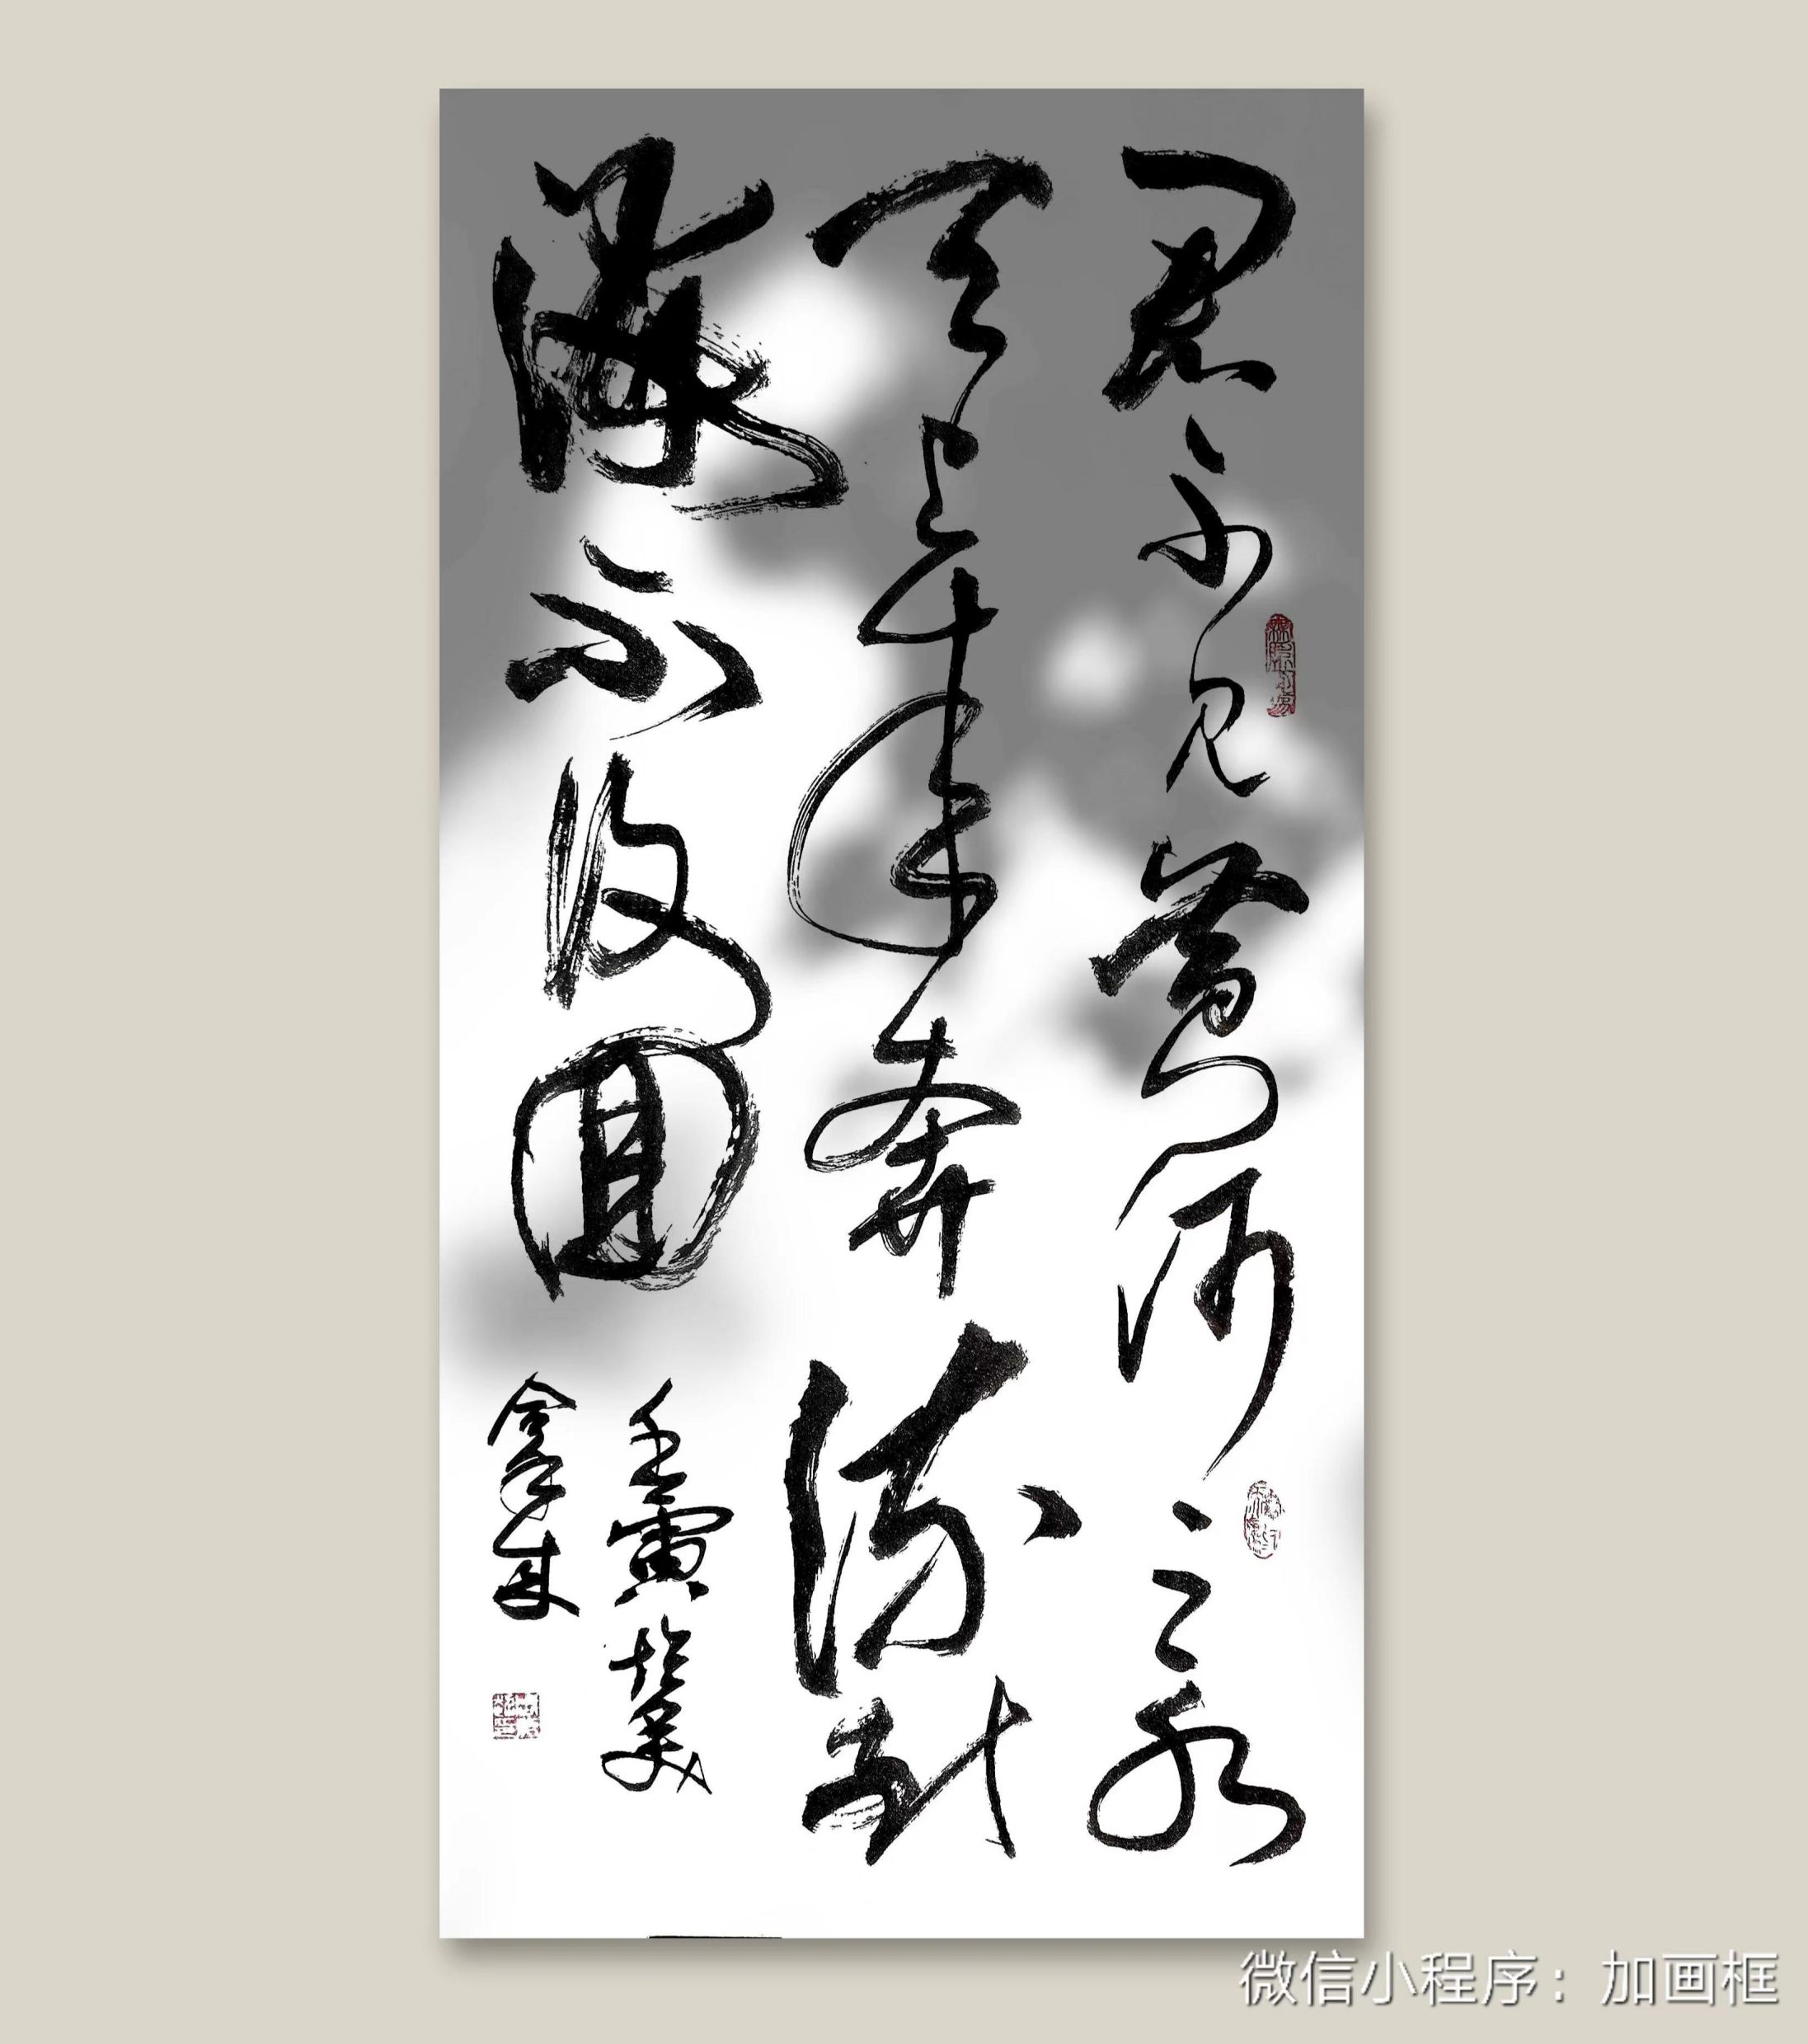 君不见黄河之水
天上来奔流到
海不復回
壬寅
微信小程序：加画框